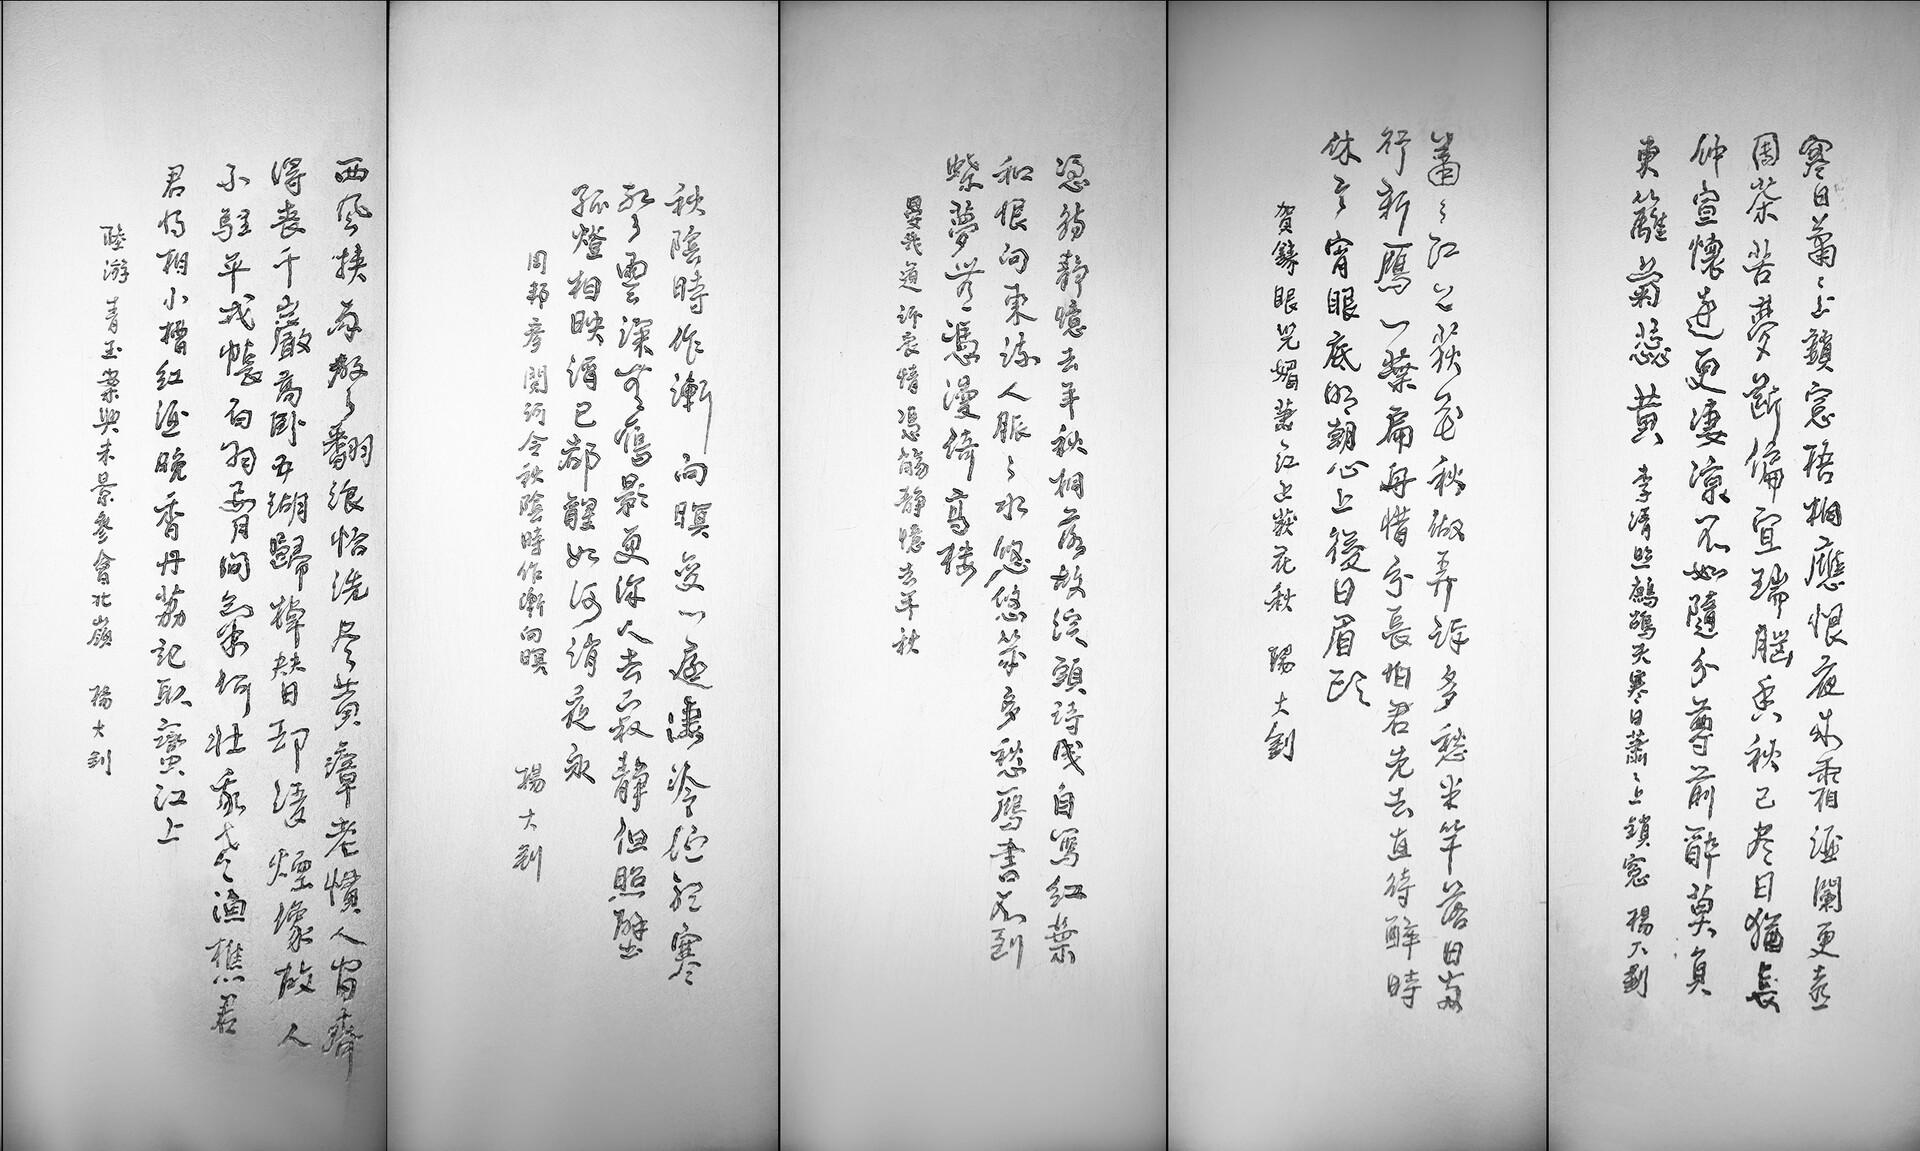 寒日蕭々上鎖窓梧桐應恨夜来霜酒闌更喜
團茶苦夢斷偏宜瑞腦香秋已尽日猶長
仲宣懷遠更淒涼不如隨分尊前醉莫負
東籬菊蕊黄 李清照鷓鴣天寒日蕭々上鎖窓 楊大釗
蕭々江上荻花秋做弄許多愁半竿落日兩
行新雁一葉扁舟惜分長怕君先去直待醉時
休今宵眼底明朝心上後日眉頭
賀鑄眼兒媚蕭々江上荻花秋 楊大釗
憑觴靜憶去年秋桐落故溪頭詩成自寫紅葉
和恨向東流人脈々水悠悠幾多愁雁書不到
蝶夢無憑漫倚高楼
晏幾道訴衷情憑觴靜憶去年秋
秋陰時作漸向暝变一庭淒冷佇聽寒
聲雲深無雁影更深人去寂靜但照壁
孤燈相映酒已都醒如何消夜永
周邦彦關河令秋陰時作漸向暝 楊大釗
西風挾雨聲翻浪恰洗尽黄瘴老慣人間齊
得喪千巖高臥五湖歸棹替卻凌煙像故人
小駐平戎帳白羽腰間氣何壯我老漁樵君
君将相小槽紅酒晚香丹荔記取蠻江上
陸游青玉案與朱景參會北嶺 楊大釗